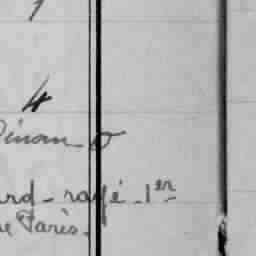 4
Dinan
ard - rayé 1er
de Paris.